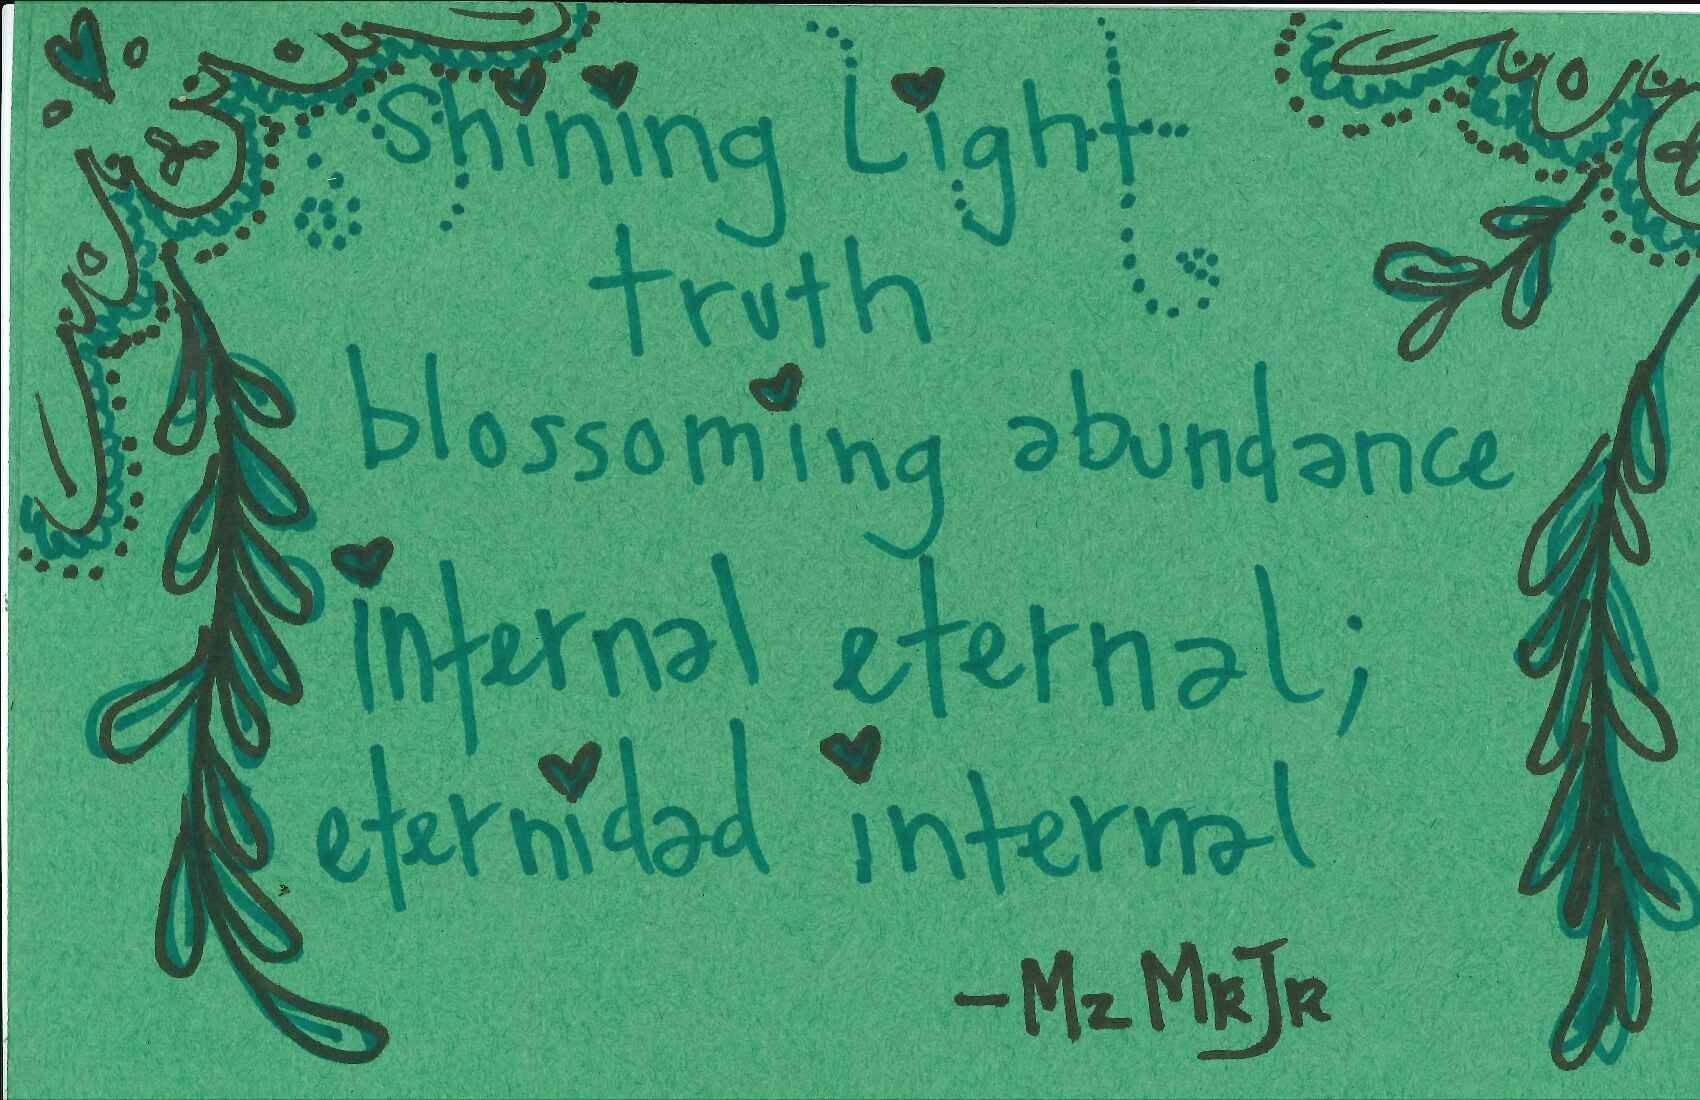 Shining Light
truth
blossoming abundance
internal eternal;
eternidad internal
- Mz MRJR